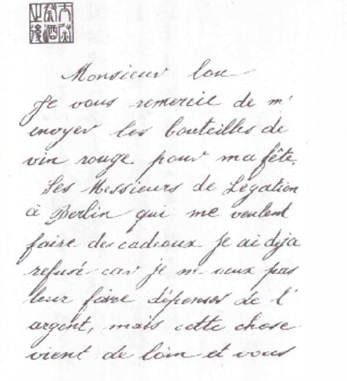 Monsieur lou
Je vous remercie de m'
envoyer les bouteilles de
vin rouge pour ma fête.
Les Messieurs de Légation
à Berlin qui me veulent
faire des cadeaux je ai déja
refusé car je m veux pas
leur faire dépenses de l'
argent, mais cette chose
vient de loin et vous